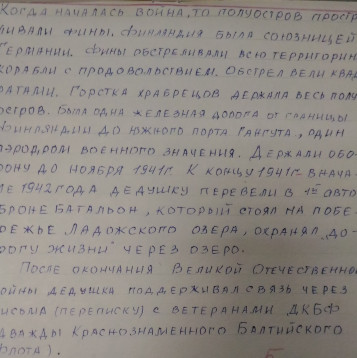 Когда началась война, то полуостров простр
ливали фины. Финландия была союзницей
Германии. Фины обстреливали всю территорию
корабли с продовольствием. Обстрел вели квад
ратами. Горстка храбрецов держала весь полу
остров. Была одна железная дорога от границы
Финляндии до южного порта Гангута, один
аэродром военного значения. Держали обо-
рону до ноября 1941г. К концу 1941г. внача-
ле 1942 года дедушку перевели в 1й авто
броне батальон, который стоял на побе-
режье Ладожского озера, охранял „до-
рогу жизни" через озеро.
После окончания Великой Отечественно
войны дедушка поддерживал связь через
письма (переписку) с ветеранами ДКБФ
дважды Краснознаменного Балтийского
флота).